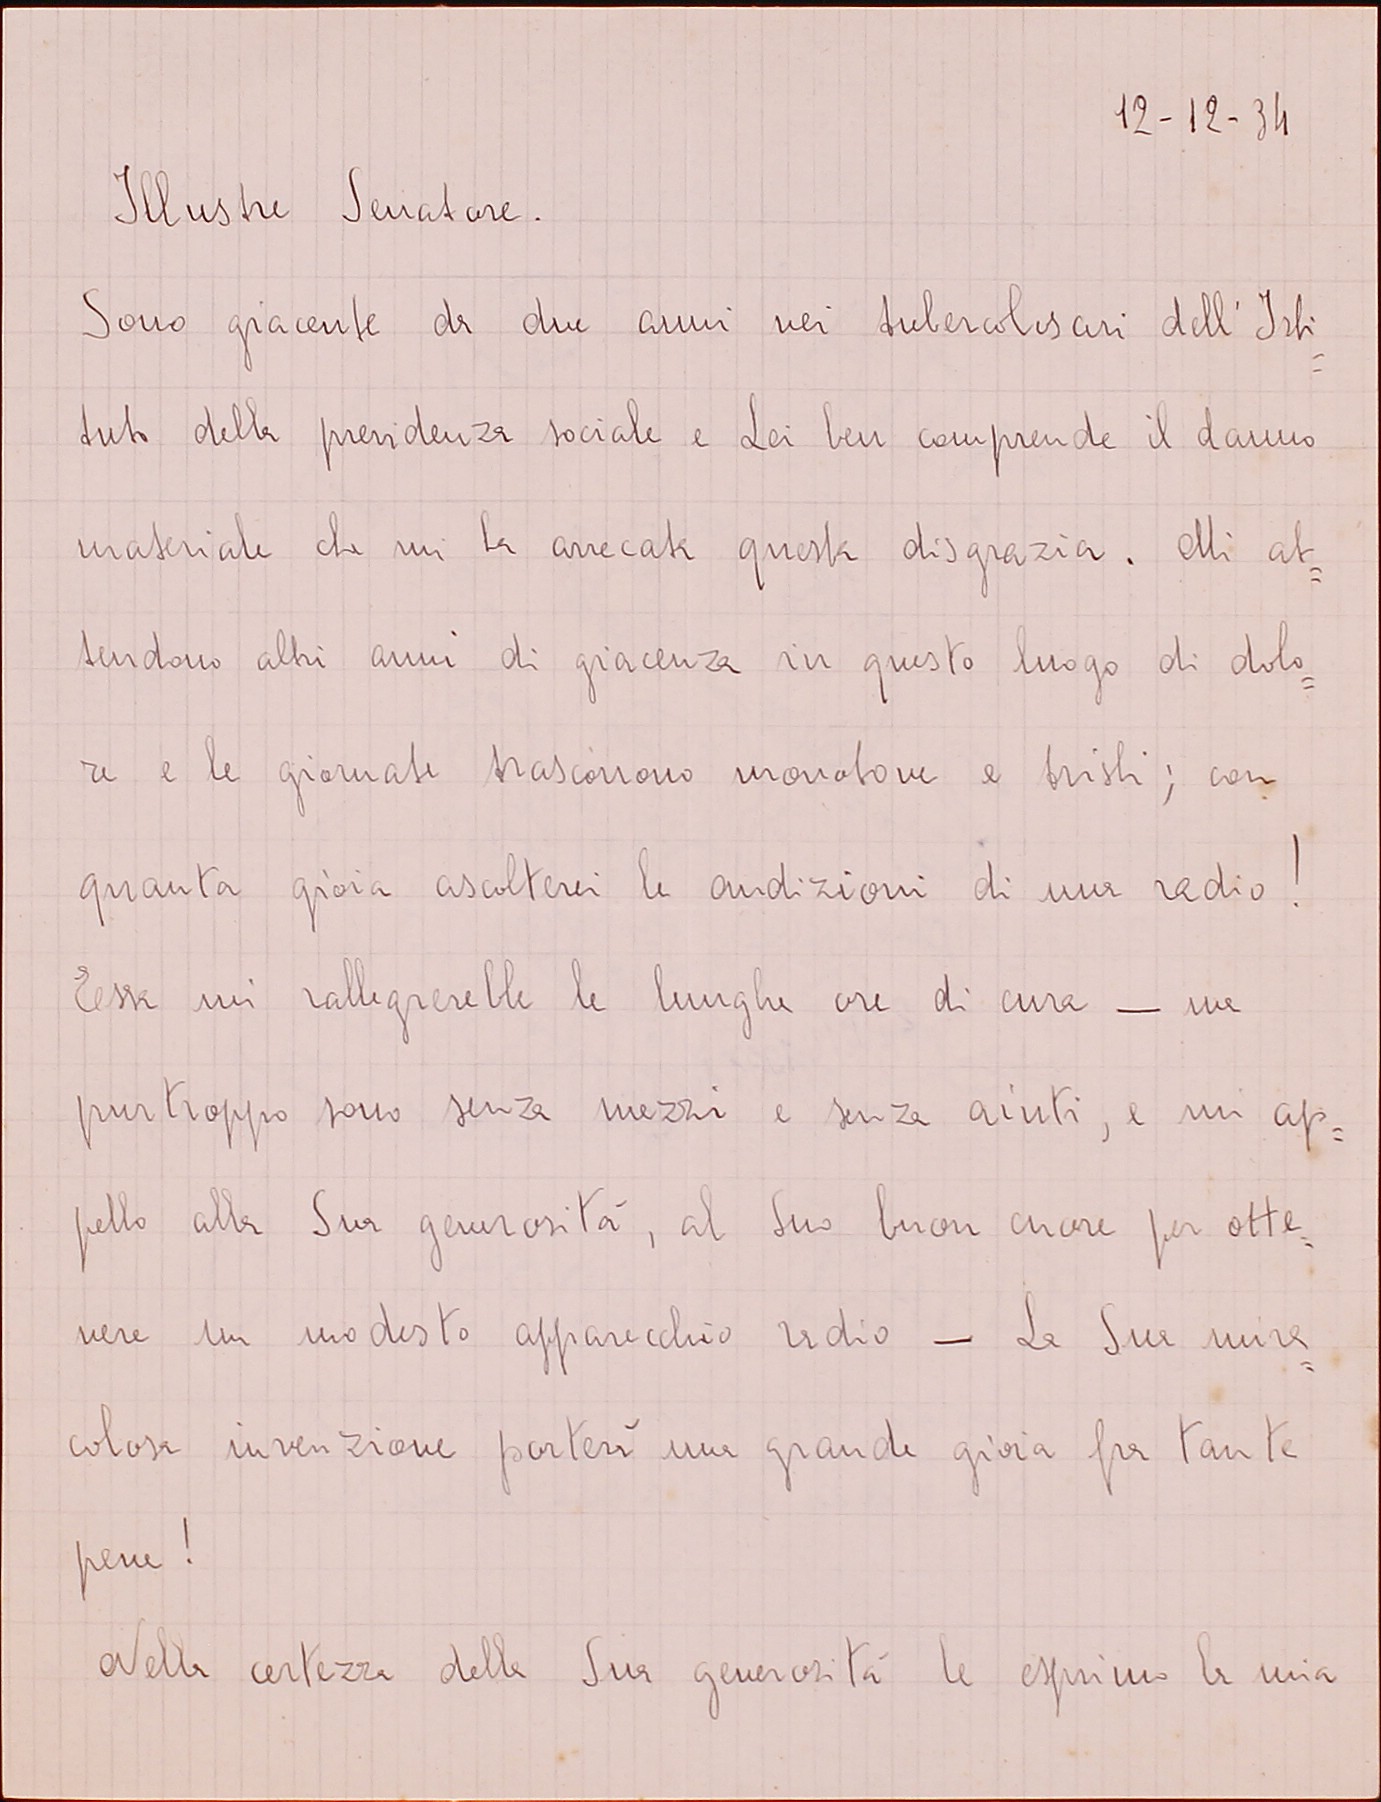 12-12-34
Illustre Senatore.
Sono giacente da due anni nei tubercolosari dell'Isti=
tuto della previdenza sociale e Lei ben comprende il danno
materiale che mi ha arrecata questa disgrazia. Mi at=
tendono altri anni di giacenza in questo luogo di dolo=
re e le giornate trascorrono monotone e tristi; con
quanta gioia ascolterei le audizioni di una radio!
Essa mi rallegrerebbe le lunghe ore di cura — ma
purtroppo sono senza mezzi e senza aiuti, e mi ap=
pello alla Sua generosità, al Suo buon cuore per otte=
nere un modesto apparecchio radio — La Sua mira=
colosa invenzione porterà una grande gioia fra tante
pene!
Nella certezza della Sua generosità le esprimo la mia